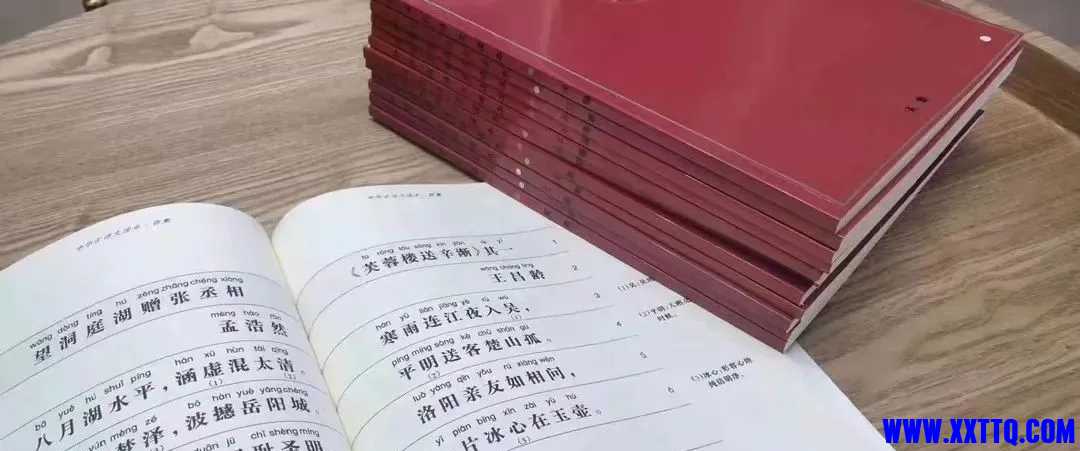 wàng dòng tíng hú zèng zhāng chéng xiàng
望洞庭湖赠张丞相
mèng hào rán
孟浩然
bā yuè hú shuǐ píng hán xū hùn tài qīng
八月湖水平，涵虚混太清。
(1)
yún mèng zé bō hàn yuè yáng chéng
梦泽，波撼岳阳城。
jū chǐ shèng míng
fú róng lóu sòng xīn jiàn qí yī
《芙蓉楼送辛渐》其一 1
wáng chāng líng
王昌龄 2
hán yǔ lián jiāng yè rù wú
寒雨连江夜入吴， 3
(1)
píng míng sòng kè chǔ shān gū
平明送客楚山孤。 4
(2)
luò yáng qīn yǒu rú xiāng wèn
洛阳亲友如相问， 5
yí piàn bīng xīn zài yù hú
片冰心在玉壶。 6
(3)
(1)吴:
(2)平明:
时候。
(3)冰心:形容心地
纯洁明净。
WWW.XXTTQ.COM